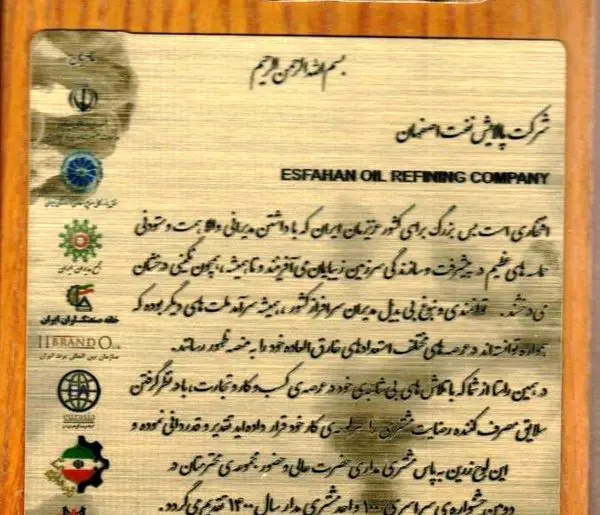 بسم الله الرحمن الرحیم
شرکت پالایش نفت اصفهان
ESFAHAN OIL REFINING COMPANY
افتخاری است بس بزرگ برای کشور عزیزمان ایران که با داشتن مدیرانی والا همت و ستودنی
حماسه های عظیم در پیشرفت و سازندگی سرزمین زیبایمان می آفرینند و تا همیشه، همچون نگینی درخشان
می درخشند. توانمندی و نبوغ بی بدیل مدیران سرافراز کشور، همیشه سرآمد ملت های دیگر بوده که
همواره توانسته اند در عرصه های مختلف استعدادهای خارق العاده خود را به منصه ظهور رسانند.
در همین راستا از شما که با تلاش های بی شائبه ی خود در عرصه ی کسب و کار و تجارت، با در نظر گرفتن
سلایق مصرف کننده رضایت مشتری را سرلوحه ی کار خود قرار داده اید تقدیر و قدردانی نموده و
این لوح زرین به پاس مشتری مداری حضرت عالی و حضور مجموعه ی محترمتان در
دومین جشنواره ی سراسری ۱۰۰ واحد مشتری مدار سال ۱۴۰۰ تقدیم می گردد.
خانه صنعتگران ایران
IIBRANDO
سازمان بین المللی برند ایران
eurasia